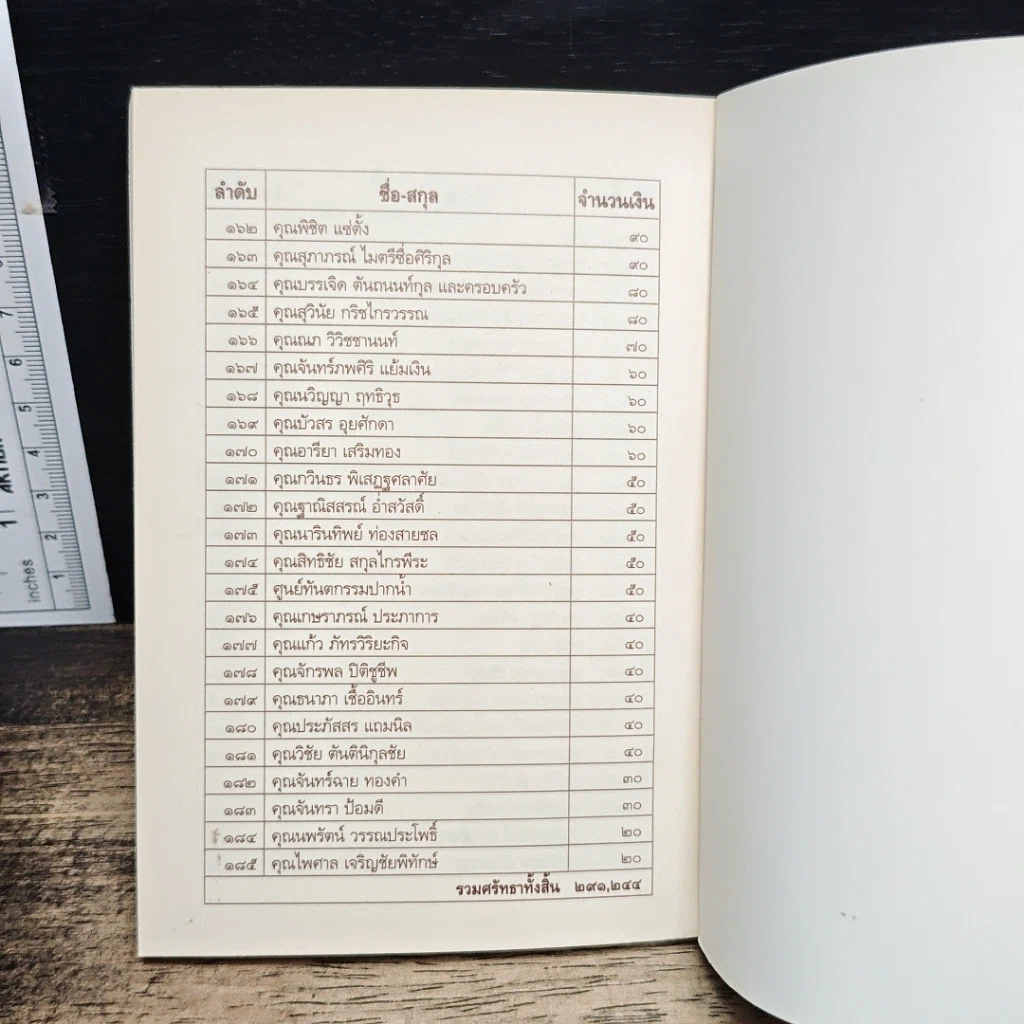 ลำดับ ชื่อ-สกุล จำนวนเงิน
๑๖๒ คุณพิชิต แซ่ตั้ง ๙๐
๑๖๓ คุณสุภาภรณ์ ไมตรีซื่อศิริกุล ๙๐
๑๖๔ คุณบรรเจิด ตันถนนท์กุล และครอบครัว ๘๐
๑๖๕ คุณสุวินัย กริชไกรวรรณ ๘๐
๑๖๖ คุณณภ วิวิชชานนท์ ๗๐
๑๖๗ คุณจันทร์ภพศิริ แย้มเงิน ๖๐
๑๖๘ คุณนวิญญา ฤทธิวุธ ๖๐
๑๖๙ คุณบัวสร อุยศักดา ๖๐
๑๗๐ คุณอารียา เสริมทอง ๖๐
๑๗๑ คุณกวินธร พิเสฏฐศลาศัย ๕๐
๑๗๒ คุณฐาณิสสรณ์ อ่ำสวัสดิ์ ๕๐
๑๗๓ คุณนารินทิพย์ ท่องสายชล ๕๐
๑๗๔ คุณสิทธิชัย สกุลไกรพีระ ๕๐
๑๗๕ ศูนย์ทันตกรรมปากน้ำ ๕๐
๑๗๖ คุณเกษราภรณ์ ประภาการ ๔๐
๑๗๗ คุณแก้ว ภัทรวิริยะกิจ ๔๐
๑๗๘ คุณจักรพล ปิติชูชีพ ๔๐
๑๗๙ คุณธนาภา เชื้ออินทร์ ๔๐
๑๘๐ คุณประภัสสร แถมนิล ๔๐
๑๘๑ คุณวิชัย ตันตินิกุลชัย ๔๐
๑๘๒ คุณจันทร์ฉาย ทองคำ ๓๐
๑๘๓ คุณจันทรา ป้อมดี ๓๐
๑๘๔ คุณนพรัตน์ วรรณประโพธิ์ ๒๐
๑๘๕ คุณไพศาล เจริญชัยพิทักษ์ ๒๐
รวมศรัทธาทั้งสิ้น ๒๙๑,๒๔๔
inches
1 2 3 4 5 6 7
1